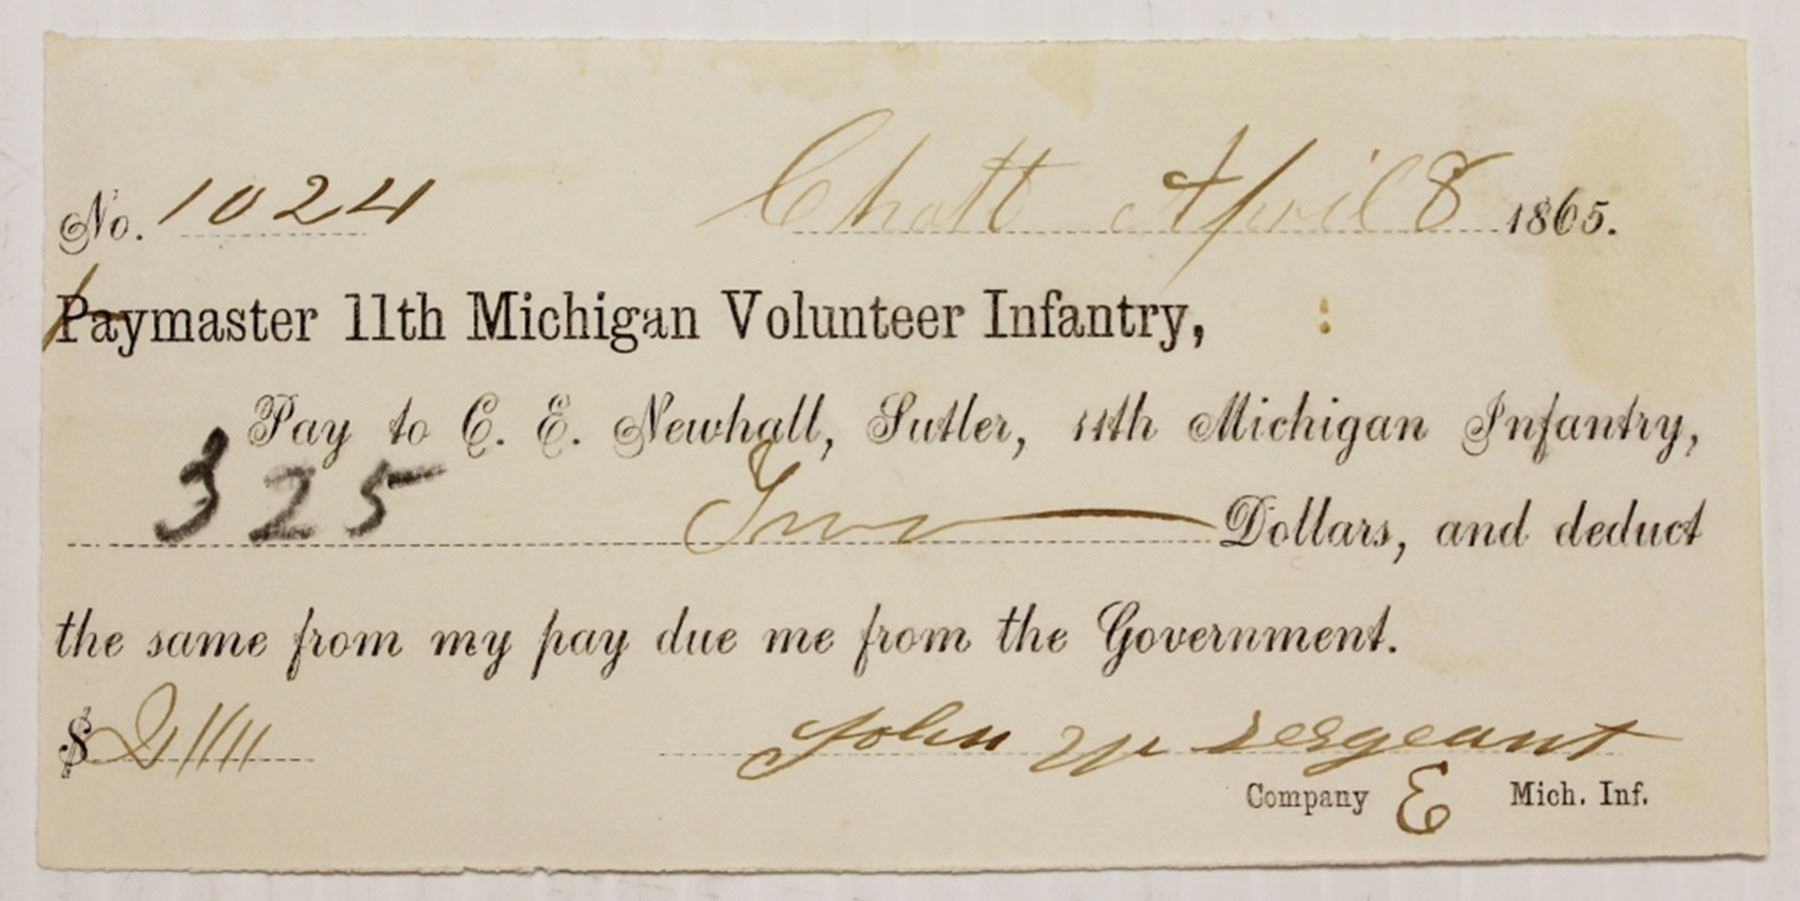 No. 1024 Chatt April 8 1865.
Paymaster 11th Michigan Volunteer Infantry,
Pay to C. E. Newhall, Sutler, 11th Michigan Infantry,
325 Two Dollars, and deduct
the same from my pay due me from the Government.
$2
John W Sergeant
Company E Mich. Inf.